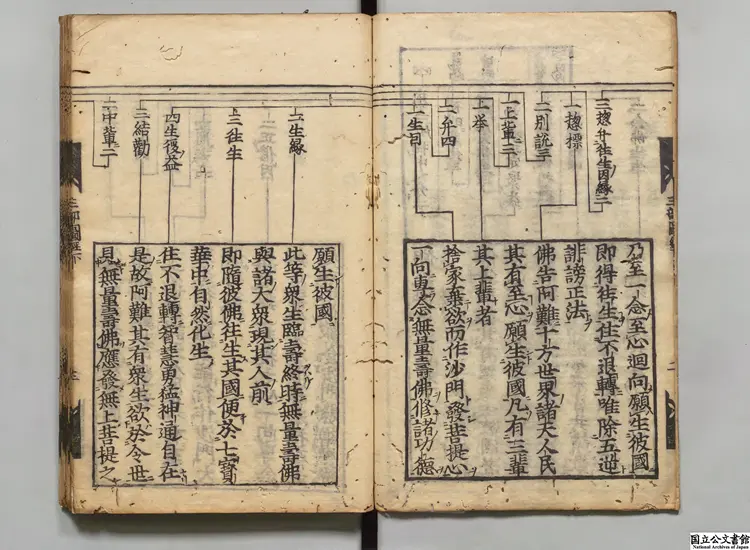 三摠弁往生因縁二
一摠標
二別説三
一上輩三
一挙
二弁四
一生因
乃至一念至心迴向願生彼國
即得徃生住不退轉唯除五逆
誹謗正法
佛告阿難十方世界諸天人民
其有至心願生彼國凡有三輩
其上輩者
捨家棄欲而作沙門發菩提心
一向專念無量壽佛修諸功德
二生縁
三往生
四生後益
三結勸
二中輩二
願生彼國
此等衆生臨壽終時無量壽佛
與諸大衆現其人前
即隨彼佛徃生其國便於七寶
華中自然化生
住不退轉智慧勇猛神通自在
是故阿難其有衆生欲於今世
見無量壽佛應發無上菩提之
三部圖經下
国立公文書館
National Archives of Japan